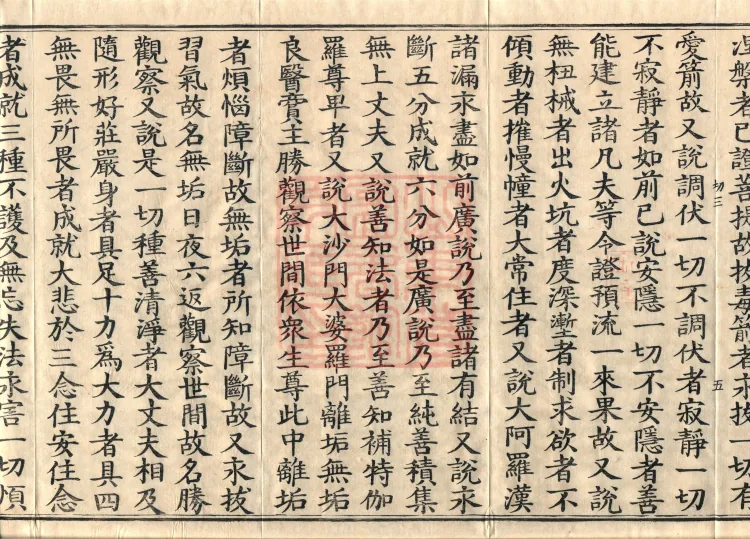 涅槃者已證菩提故拔毒箭者永拔一切有
愛箭故又說調伏一切不調伏者寂靜一切
不寂靜者如前已說安隱一切不安隱者善
能建立諸凡夫等令證預流一來果故又說
無杻械者出火坑者度深塹者制求欲者不
傾動者摧慢幢者大常住者又說大阿羅漢
諸漏永盡如前廣說乃至盡諸有結又說永
斷五分成就六分如是廣說乃至純善積集
無上丈夫又說善知法者乃至善知補特伽
羅尊卑者又說大沙門大婆羅門離垢無垢
良醫賣主勝觀察世間依衆生尊此中離垢
者煩惱障斷故無垢者所知障斷故又永拔
習氣故名無垢日夜六返觀察世間故名勝
觀察又說是一切種善清淨者大丈夫相及
隨形好莊嚴身者具足十力為大力者具四
無畏無所畏者成就大悲於三念住安住念
者成就三種不護及無忘失法永害一切煩
初三
五